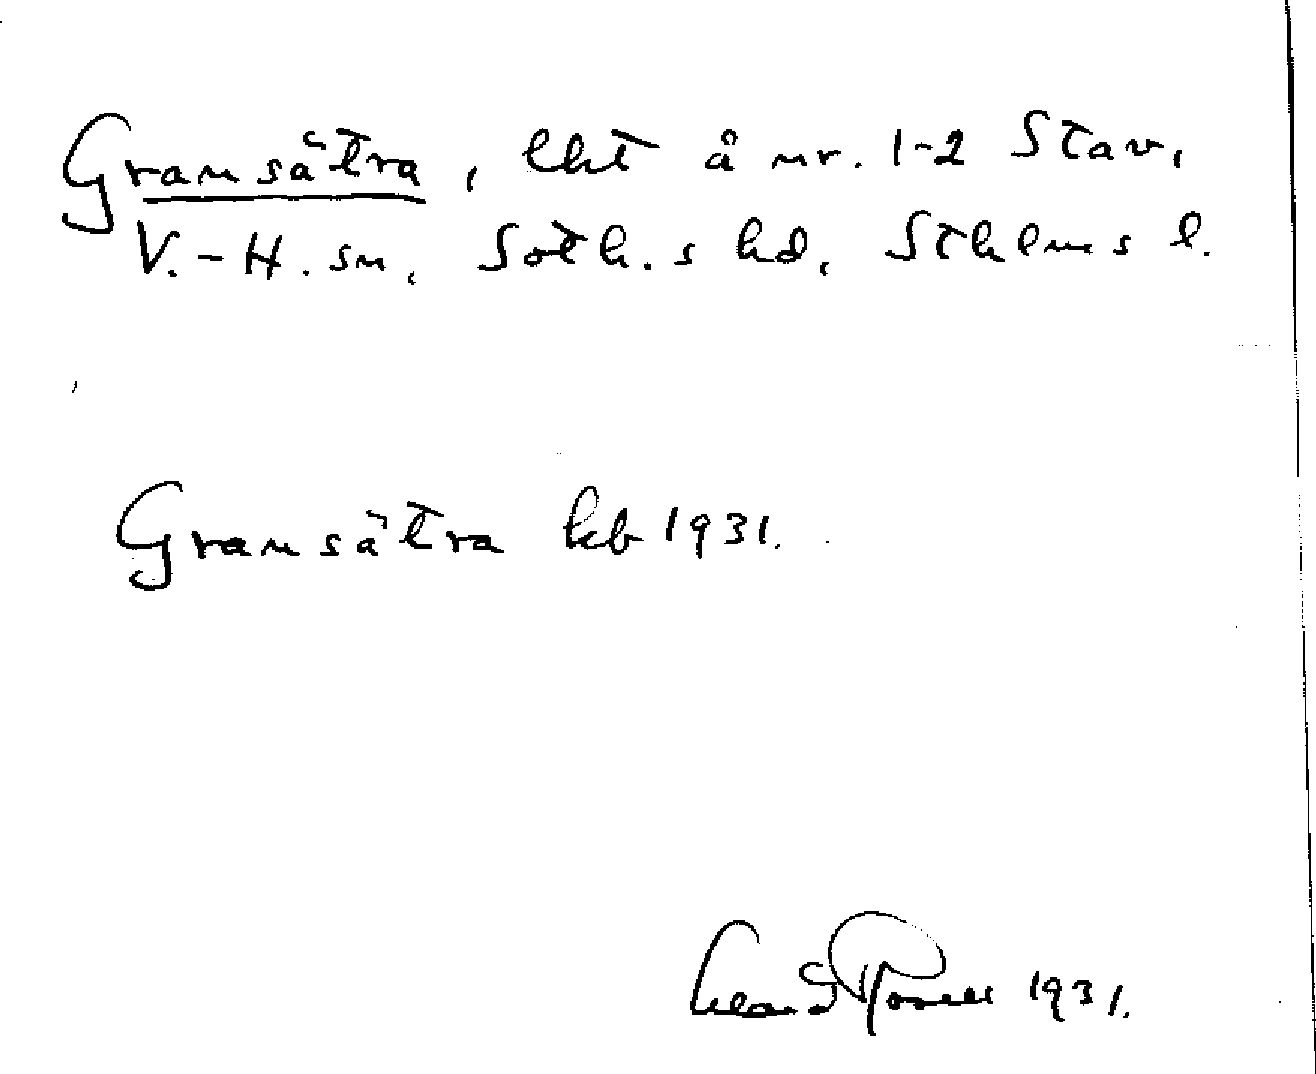 Gransätra, lht å nr. 1-2 Stav,
V.-H. sn, Soth. s hd, Sthlms l.
Gransätra kb 1931.
1931.